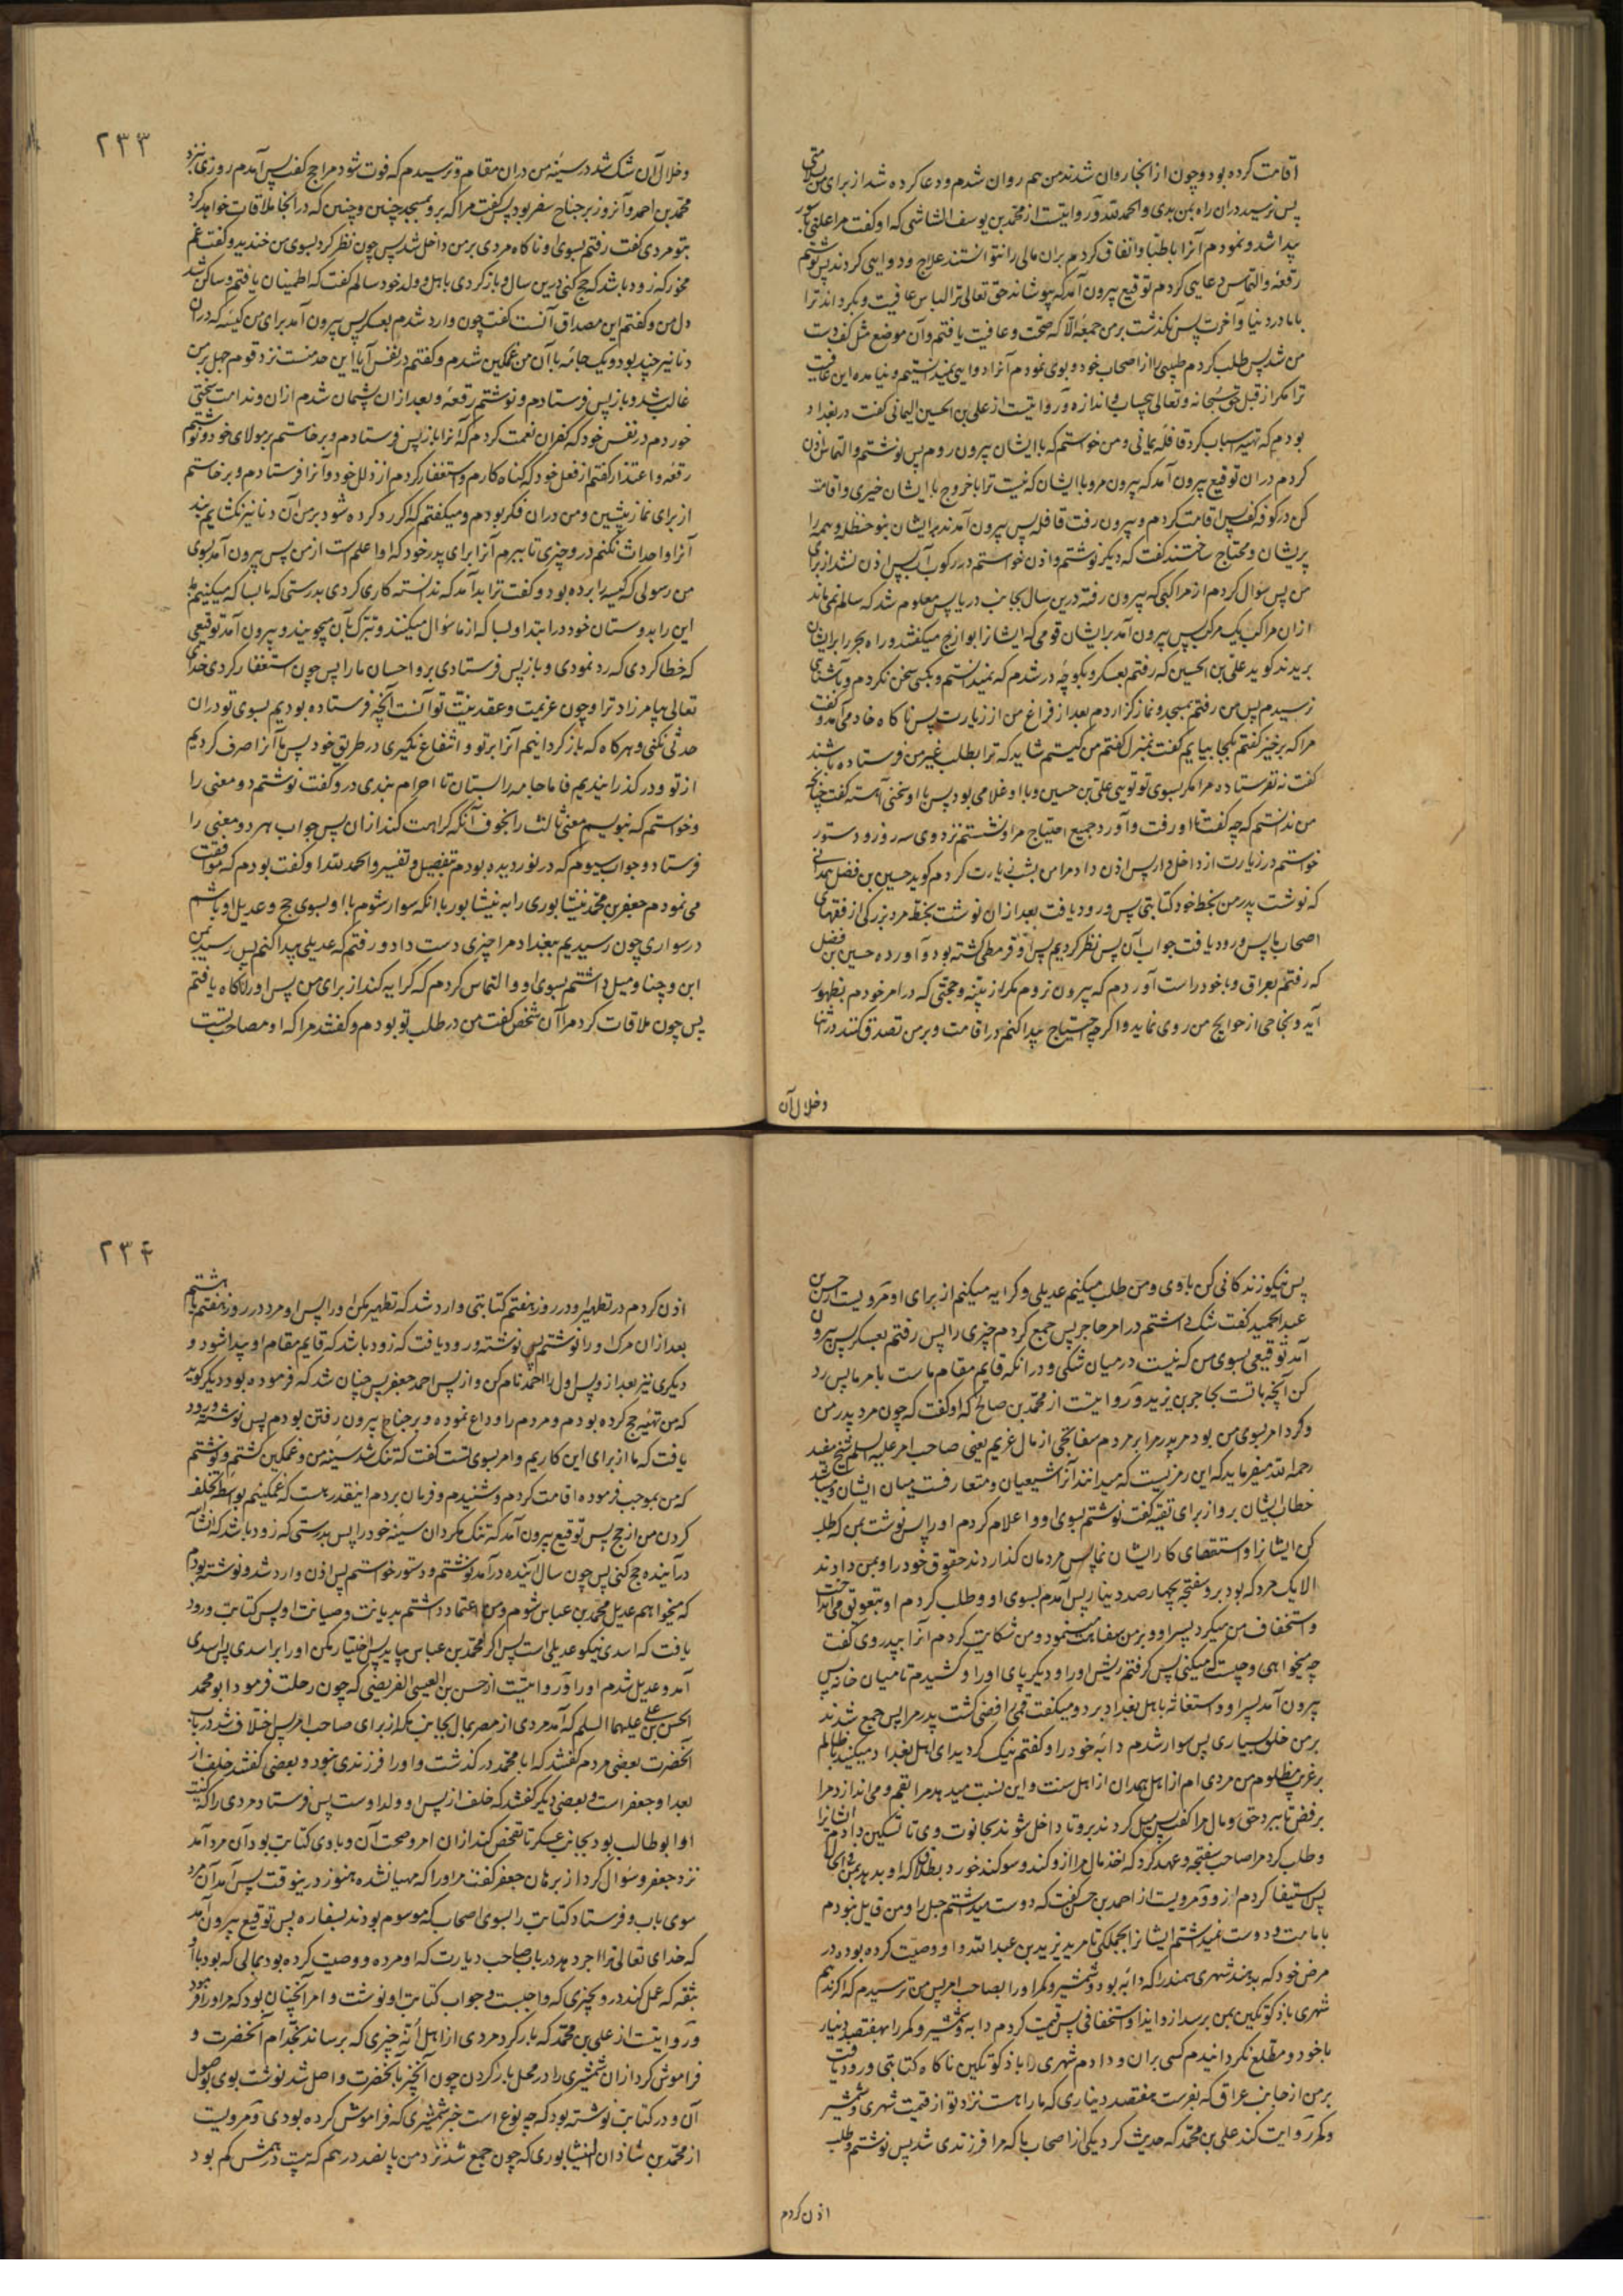 اقامت کرده بود و چون از آنجا روان شدند من هم روان شدم و دعا کرده شد از برای من بسلامتی
پس نرسید در آن راه بمن بدی والحمد لله و روایتست از محمد بن یوسف الشاشی که او گفت مرا علتی ناسور
پیدا شد و نمودم آنرا باطبا و اتفاق کردم بران مالی را نتوانستند علاج و دوایی کردند پس نوشتم
رقعه و التماس دعایی کردم توقیع بیرون آمد که بپوشاند حق تعالی ترا لباس عافیت و بگرداند ترا
با ما در دنیا و آخرت پس نگذشت بر من جمعه الا که صحت و عافیت یافتم و آن موضع مثل کف دست
من شد پس طلب کردم طبیبی را از اصحاب خود و بوی نمودم آنرا دوایی نمیدانستیم و نیامده این عافیت
ترا مگر از قبل حق سبحانه و تعالی بیحساب و اندازه و روایتست از علی بن الحسین الیمانی گفت در بغداد
بودم که تهیه اسباب کرد قافله یمانی و من خواستم که با ایشان بیرون روم پس نوشتم و التماس اذن
کردم در آن توقیع بیرون آمد که بیرون مرو با ایشان که نیست ترا با خروج با ایشان خیری و اقامت
کن در کوفه گفت پس اقامت کردم و بیرون رفت قافله پس بیرون آمدند بر ایشان بنو حنظله و همه را
پریشان و محتاج ساختند گفت که دیگر نوشتم و اذن خواستم در رکوب آب پس اذن نشد از برای
من پس سؤال کردم از مراکبی که بیرون رفته درین سال بجانب دریا پس معلوم شد که سالم نمی ماند
از آن مراکب یک مرکب پس بیرون آمد بر ایشان قومی که ایشانرا بوازج میگفتند و راه بحر را بر ایشان
بریدند گوید علی بن الحسین که رفتم بعسکر و بکوچه در شدم که نمیدانستم و بکسی سخن نکردم و بآشنایی
نرسیدم پس من رفتم بمسجد و نماز گزاردم بعد از فراغ من از زیارت پس ناگاه خادمی آمد و گفت
مرا که برخیز گفتم بکجا بیایم گفت بمنزل گفتم من کیستم شاید که ترا بطلب غیر من فرستاده باشند
گفت نه نفرستاده مرا مگر بسوی تو تویی علی بن حسین و با او غلامی بود پس با او سخنی آهسته گفت چنانچه
من ندانستم که چه گفت تا او رفت و آورد جمیع احتیاج مرا و نشستم نزد وی سه روز و دستور
خواستم در زیارت از داخل دار پس اذن داد مرا پس بشب زیارت کردم گوید حسین بن فضل همدانی
که نوشت پدر من بخط خود کتابتی پس ورود یافت بعد از آن نوشت بخط مرد بزرگی از فقهای
اصحاب ما پس ورود یافت جواب آن پس نظر کردیم پس او قرمطی گشته بود و آورده حسین بن فضل
که رفتم بعراق و با خود راست آوردم که بیرون نروم مگر از بینه و حجتی که در امر خودم بظهور
آید و نجاحی از حوایج من روی نماید و اگر چه احتیاج پیدا کنم در اقامت و بر من تصدق کنند در آنها
و خلال آن
۲۳۳
و خلال آن شک شد در سینه من در آن مقام و ترسیدم که فوت شود مرا حج گفت پس آمدم روزی نزد
محمد بن احمد و آنروز بر جناح سفر بود پس گفت مرا که برو بمسجد چنین و چنین که در آنجا ملاقات خواهد کرد
بتو مردی گفت رفتم بسوی او ناگاه مردی بر من داخل شد پس چون نظر کرد بسوی من خندید و گفت غم
مخور که زود باشد که حج کنی درین سال و باز گردی باهل و ولد خود سالم گفت که اطمینان یافتم و ساکن شد
دل من و گفتم این مصداق آنست گفت چون وارد شدم بعسکر پس بیرون آمد برای من کیسه که در آن
دنانیر چند بود و یک جامه با آن من غمگین شدم و گفتم در نفس آیا این حد منست نزد قوم جهل بر من
غالب شد و باز پس فرستادم و نوشتم رقعه و بعد از آن پشیمان شدم از آن و ندامت سختی
خوردم در نفس خود که کفران نعمت کردم که آنرا باز پس فرستادم و برخاستم بر مولای خود و نوشتم
رقعه و اعتذار گفتم از فعل خود که گناه کارم و استغفار کردم از زلل خود و آنرا فرستادم و برخاستم
از برای نماز پیشین و من در آن فکر بودم و میگفتم که اگر رد کرده شود بر من آن دنانیر نگشایم بند
آنرا و احداث نکنم در و چیزی تا ببرم آنرا برای پدر خود که او اعلم است از من پس بیرون آمد بسوی
من رسولی که کیسه را برده بود و گفت ترا بد آمد که ندانسته کاری کردی بدرستی که ما بسا که میکنیم
این را بدوستان خود در ابتدا و بسا که از ما سؤال میکنند و تبرک بآن میجویند و بیرون آمد توقیعی
که خطا کردی که رد نمودی و باز پس فرستادی بر و احسان ما را پس چون استغفار کردی خدای
تعالی بیامرزاد ترا و چون عزیمت و عقد نیت تو آنست آنچه فرستاده بودیم بسوی تو در آن
حدثی نکنی و هر گاه که باز گردانیم آنرا بر تو و انتفاع نگیری در طریق خود پس ما آنرا صرف کردیم
از تو و در گذرانیدیم فاما جامه را بستان تا احرام بندی در و گفت نوشتم دو معنی را
و خواستم که بنویسم معنی ثالث را بخوف آنکه کراهت کند از آن پس جواب بهر دو معنی را
فرستاد و جواب سیوم که در نوردیده بودم بتفصیل و تفسیر والحمد لله او گفت بودم که موافقت
می نمودم جعفر بن محمد نیشابوری را به نیشابور با آنکه سوار شوم با او بسوی حج و عدیل او باشم
در سواری چون رسیدیم ببغداد مرا چیزی دست داد و رفتم که عدیلی پیدا کنم پس رسید بمن
ابن وجنا و میل داشتم بسوی او و التماس کردم که کرایه کند از برای من پس او را ناگاه یافتم
پس چون ملاقات کرد مرا آن شخص گفت من در طلب تو بودم و گفتند مرا که او مصاحب تست
پس نیکو زندگانی کن با وی و من طلب میکنم عدیلی و کرایه میکنم از برای او و مرویست از حسن بن
عبد الحمید گفت شک داشتم در امر حاجز پس جمع کردم چیزی را پس رفتم بعسکر پس بیرون
آمد توقیعی بسوی من که نیست در میان شکی و در آنکه قایم مقام ماست بامر ما پس رد
کن آنچه با تست بحاجز بن یزید و روایتست از محمد بن صالح که او گفت که چون مرد پدر من
و گرد امر بسوی من بود مر پدر مرا بر مردم سفاتجی از مال غریم یعنی صاحب امر علیه السلم شیخ مفید
رحمه الله میفرماید که این رمزیست که میدانند آنرا شیعیان و متعارفست میان ایشان و میباشد
خطاب ایشان بر و از برای تقیه گفت نوشتم بسوی او و اعلام کردم او را پس نوشت بمن که طلب
کن ایشانرا و استقصای کار ایشان نما پس مردمان گذاردند حقوق خود را و بمن دادند
الا یک مرد که بود بر و سفتجه بچهار صد دینار پس آمدم بسوی او و طلب کردم او بتعویق می انداخت
و استخفاف من میکرد پسر او و بر من سفاهت مینمود و من شکایت کردم آنرا بپدر وی گفت
چه میخواهی و چیست که میکنی پس گرفتم ریش او را و دیگر پای او را و کشیدم تا میان خانه پس
بیرون آمد پسر او و استغاثه باهل بغداد برد و میگفت قمی رافضی کشت پدر مرا پس جمع شدند
بر من خلق بسیاری پس سوار شدم دابه خود را و گفتم نیک کردید ای اهل بغداد میکنید با ظالم
بر غریب مظلوم من مردی ام از اهل همدان از اهل سنت و این نسبت میدهد مرا بقم و می اندازد مرا
برفض تا ببرد حق و مال مرا گفت پس میل کردند بر و تا داخل شوند بحانوت وی تا تسکین دادم ایشانرا
و طلب کرد مرا صاحب سفتجه و عهد کرد که اخذ مال مرا ازو کند و سوگند خورد بطلاق که او بدهد بمن فی الحال
پس استیفا کردم ازو و مرویست از احمد بن حسن گفت که دوست میداشتم جبل را و من قایل نبودم
بامامت و دوست نمیداشتم ایشانرا بجملگی تا مرد یزید بن عبد الله و او وصیت کرده بود در
مرض خود که بدهند شهری سمند را که دابه بود و شمشیر و کمر او را بصاحب امر پس من ترسیدم که اگر ندهم
شهری باذکوتکین بمن برسد ازو ایذا و استخفافی پس قیمت کردم دابه و شمشیر و کمر را بهفتصد دینار
با خود و مطلع نگردانیدم کسی بر آن و دادم شهری را باذکوتکین ناگاه کتابتی ورود یافت
بر من از جانب عراق که بفرست هفتصد دیناری که ما را هست نزد تو از قیمت شهری و شمشیر
و کمر روایت کند علی بن محمد که حدیث کرد یکی از اصحاب ما که مرا فرزندی شد پس نوشتم و طلب
اذن کردم
۲۳۴
اذن کردم در تطهیر او در روز هفتم کتابتی وارد شد که تطهیر مکن او را پس او مرد در روز هفتم یا هشتم
بعد از آن مرگ او را نوشتم پس نوشته ورود یافت که زود باشد که قایم مقام او پیدا شود و
دیگری نیز بعد ازو پس اول را احمد نام کن و از پس احمد جعفر پس چنان شد که فرموده بود و دیگر گوید
که من تهیه حج کرده بودم و مردم را وداع نموده و بر جناح بیرون رفتن بودم پس نوشته ورود
یافت که ما از برای این کاریم و امر بسوی تست گفت که تنگ شد سینه من و غمگین گشتم و نوشتم
که من بموجب فرموده اقامت کردم و شنیدم و فرمان بردم اینقدر هست که غمگینم بواسطه تخلف
کردن من از حج پس توقیع بیرون آمد که تنگ مگردان سینه خود را پس بدرستی که زود باشد که انشاء
در آینده حج کنی پس چون سال آینده در آمد نوشتم و دستور خواستم پس اذن وارد شد و نوشته بودم
که میخواهم عدیل محمد بن عباس شوم و من اعتماد داشتم بدیانت و صیانت او پس کتابت ورود
یافت که اسدی نیکو عدیلی است پس اگر محمد بن عباس بیاید پس اختیار مکن او را بر اسدی پس اسدی
آمد و عدیل شدم او را و روایتست از حسن بن العیسی العریضی که چون رحلت فرمود ابو محمد
الحسن بن علی علیهما السلم که آمد مردی از مصر بمال بجانب مکه از برای صاحب امر پس اختلاف شد در باب
آنحضرت بعضی مردم گفتند که ابا محمد در گذشت و او را فرزندی نبود و بعضی گفتند خلف از
بعد او جعفر است و بعضی دیگر گفتند که خلف از پس او ولد اوست پس فرستاد مردی را که کنیت
او ابو طالب بود بجانب عسکر تا تفحص کند از آن امر و صحت آن و با وی کتابت بود آن مرد آمد
نزد جعفر و سؤال کرد از برهان جعفر گفت مر او را که مهیا نشده هنوز درینوقت پس آمد آن مرد
سوی باب و فرستاد کتابت را بسوی اصحاب که موسوم بودند بسفاره پس توقیع بیرون آمد
که خدای تعالی ترا اجر دهد در باب صاحب دیارت که او مرده و وصیت کرده بود بمالی که بود با او
بثقه که عمل کند در و بچیزی که واجبست و جواب کتابت او نوشت و امر آنچنان بود که مر او را فرمود
و روایتست از علی بن محمد که بار کرد مردی از اهل آبه چیزی که برساند بخدام آنحضرت و
فراموش کرد از آن شمشیری را در محل بار کردن چون آنچیز بآنحضرت واصل شد نوشت بوی بوصول
آن و در کتابت نوشته بود که چه نوع است خبر شمشیری که فراموش کرده بودی و مرویست
از محمد بن شاذان النیشابوری که چون جمع شد نزد من پانصد درهم که بیست درهمش کم بود